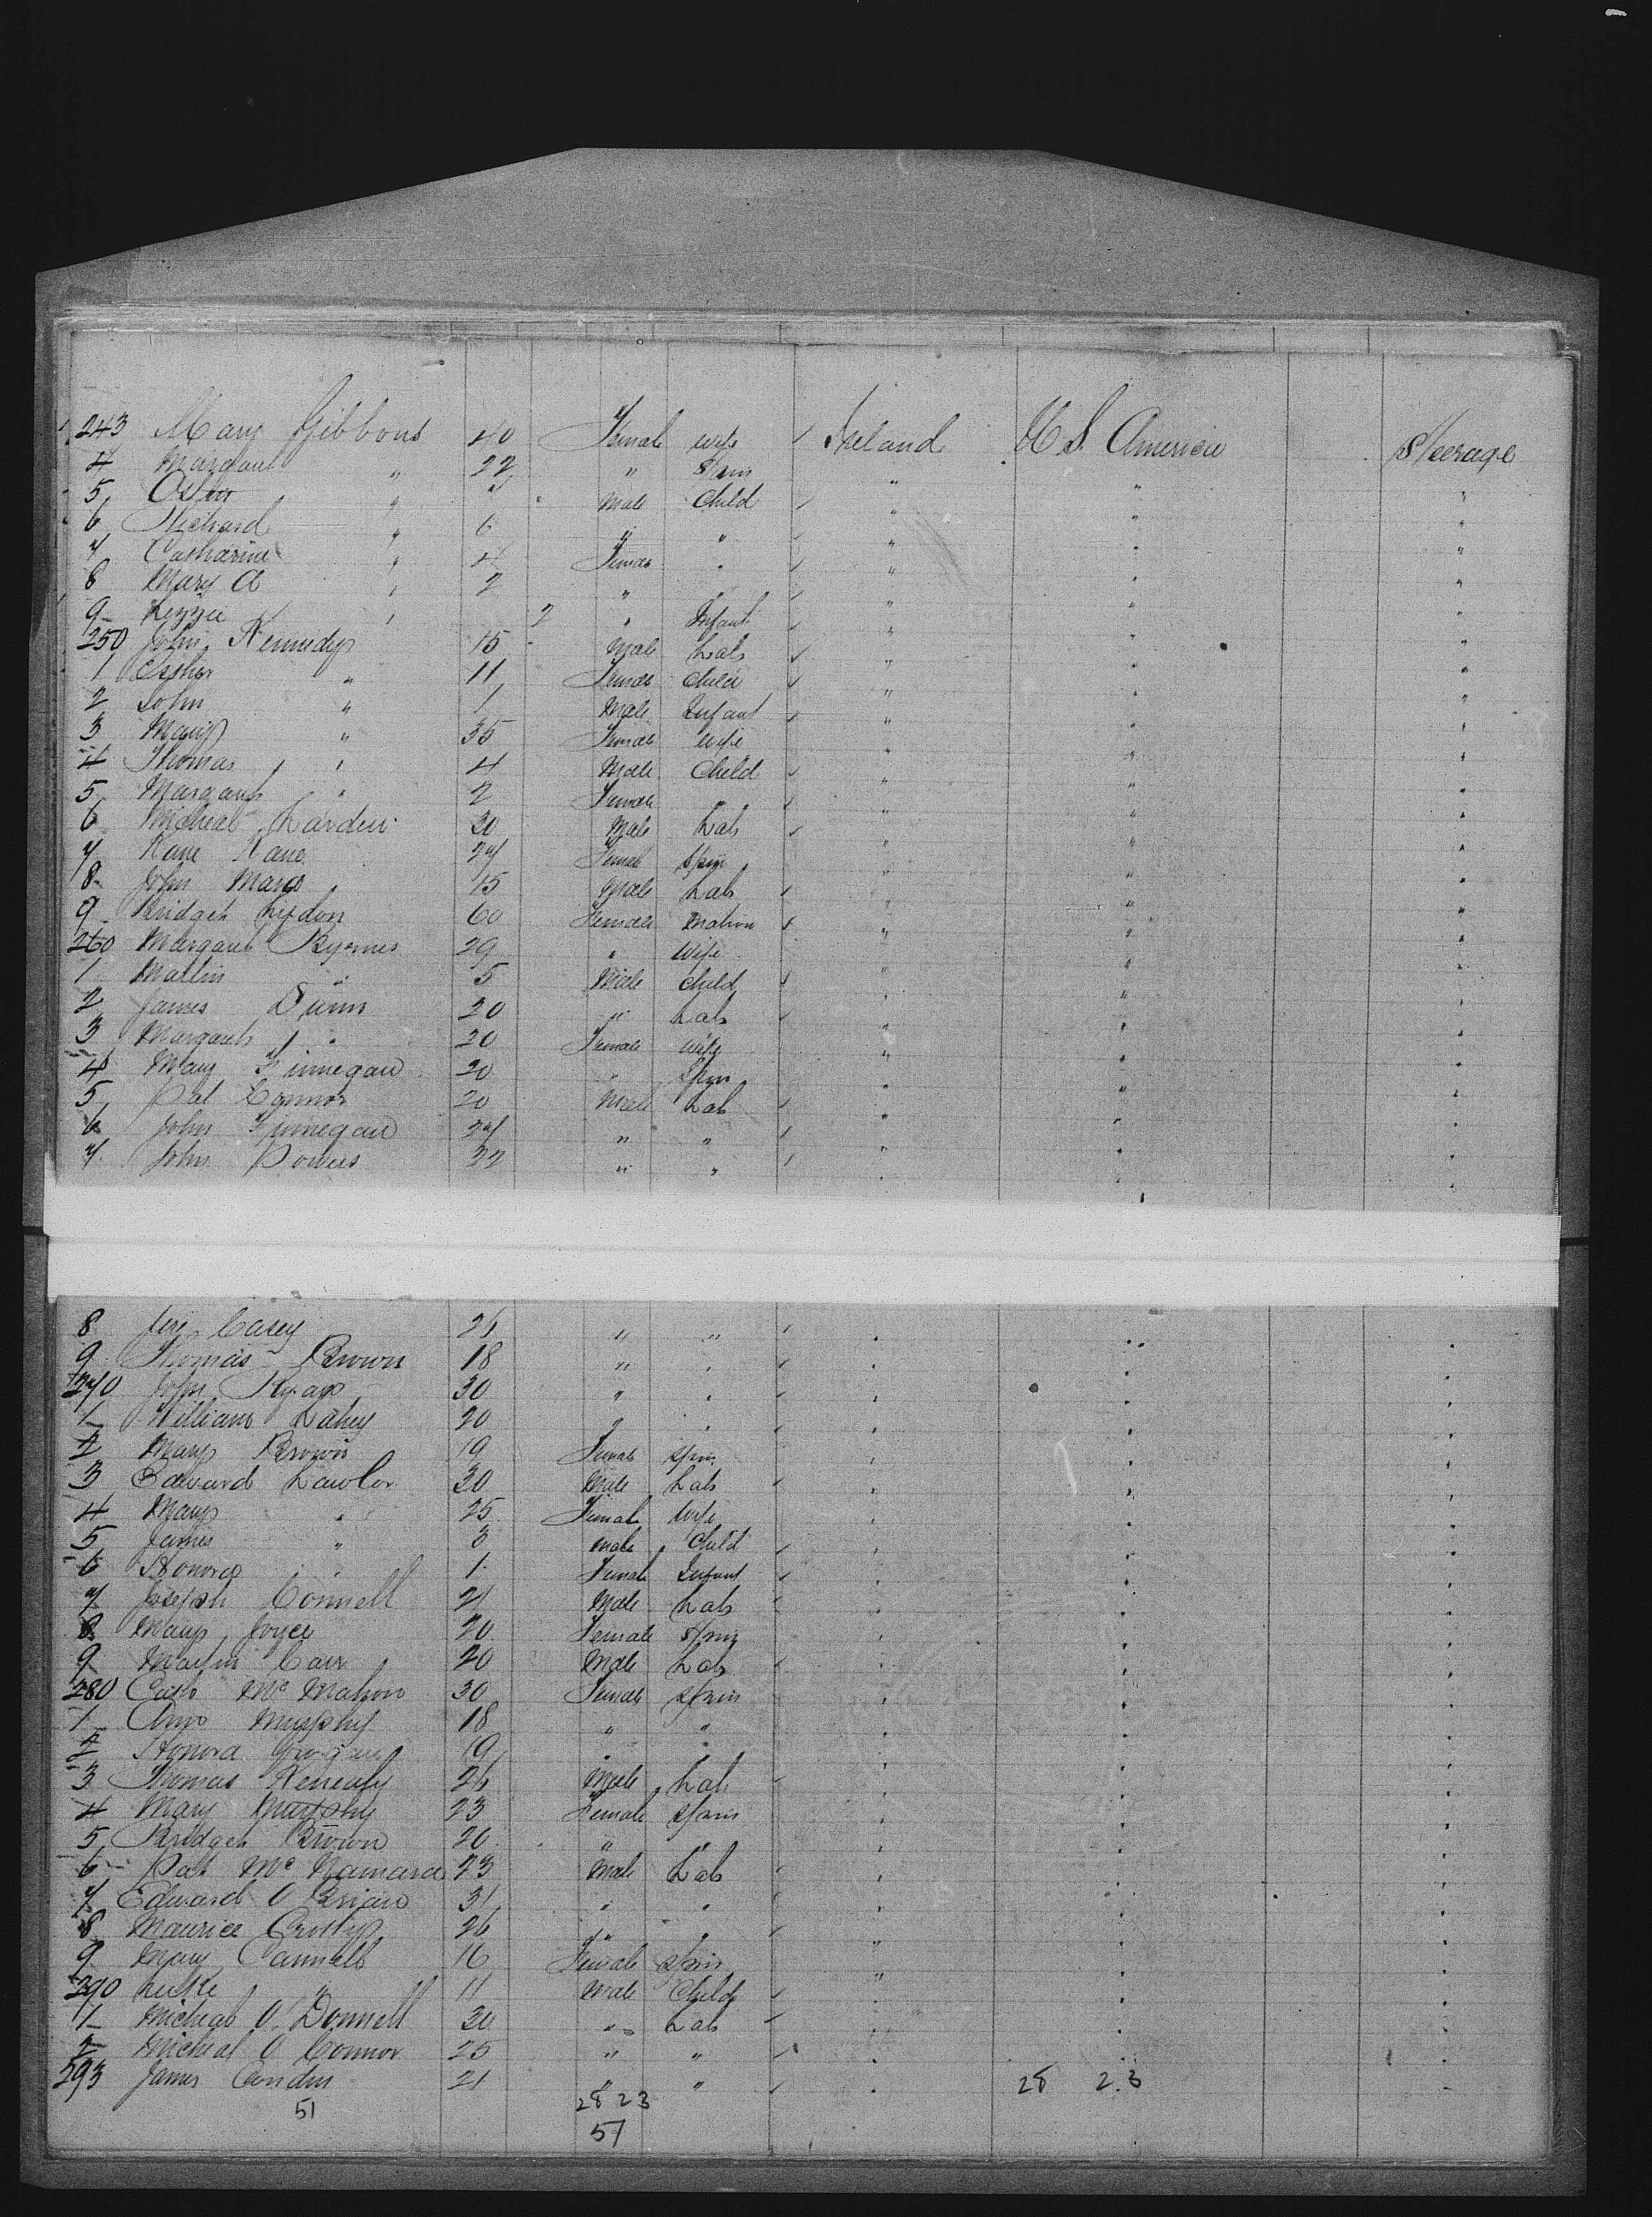 243 Mary Gibbons 40 Female wife Ireland U S. America Steerage
4 Margaret " 22 " Spin " " "
5 " 7 Male Child " " "
6 Richard " 6 " " " " "
7 Catharine " 4 Female " " " "
8 Mary A " 2 " " " " "
9 Lizzie " 2 " Infant " " "
250 John Kennedy 15 Male Lab " " "
1 Esther " 11 Female Child " " "
2 John " 1 Male Infant " " "
3 Mary " 35 Female wife " " "
4 Thomas " 4 Male Child " " "
5 Margaret " 2 Female " " " "
6 Micheal Larden 30 Male Lab " " "
7 Kane Kane 27 Female Spin " " "
8 John Mara 15 Male Lab " " "
9 Bridget Lydon 60 Female Matron " " "
260 Margaret Byrnes 29 " Wife " " "
1 Martin " 5 Male Child " " "
2 James Dunn 20 " Lab " " "
3 Margaret " 20 Female wife " " "
4 Mary Finnegan 20 " Spin " " "
5 Pat Connor 20 Male Lab " " "
6 John Finnegan 27 " " " " "
7 John Powers 22 " " " " "
8 Jere Casey 26 " " " " "
9 Thomas Brown 18 " " " " "
270 John Ryan 30 " " " " "
1 William Lahey 20 " " " " "
2 Mary Brown 19 Female Spin " " "
3 Edward Lawlor 30 Male Lab " " "
4 Mary " 25 Female Wife " " "
5 James " 3 male Child " " "
6 Honora " 1 Female Infant " " "
7 Joseph Connell 21 Male Lab " " "
8 Mary Joyce 20 Female Spin " " "
9 Martin Carr 20 Male Lab " " "
280 Cath Mc Mahon 30 Female Spin " " "
1 Ann Murphy 18 " " " " "
2 Honora 19 " " " " "
3 Thomas Keneally 26 Male Lab " " "
4 Mary Murphy 23 Female Spin " " "
5 Bridget Brown 20 " " " " "
6 Pat Mc Namara 23 Male Lab " " "
7 Edward O Brian 31 " " " " "
8 Maurice Crotty 26 " " " " "
9 Mary Cannell 16 Female Spin " " "
290 Luke " 11 Male Child " " "
1 Micheal O'Donnell 30 " Lab " " "
2 Micheal O Connor 25 " " " " "
293 James Condin 21 " " " 28 23 "
51 28 23
51